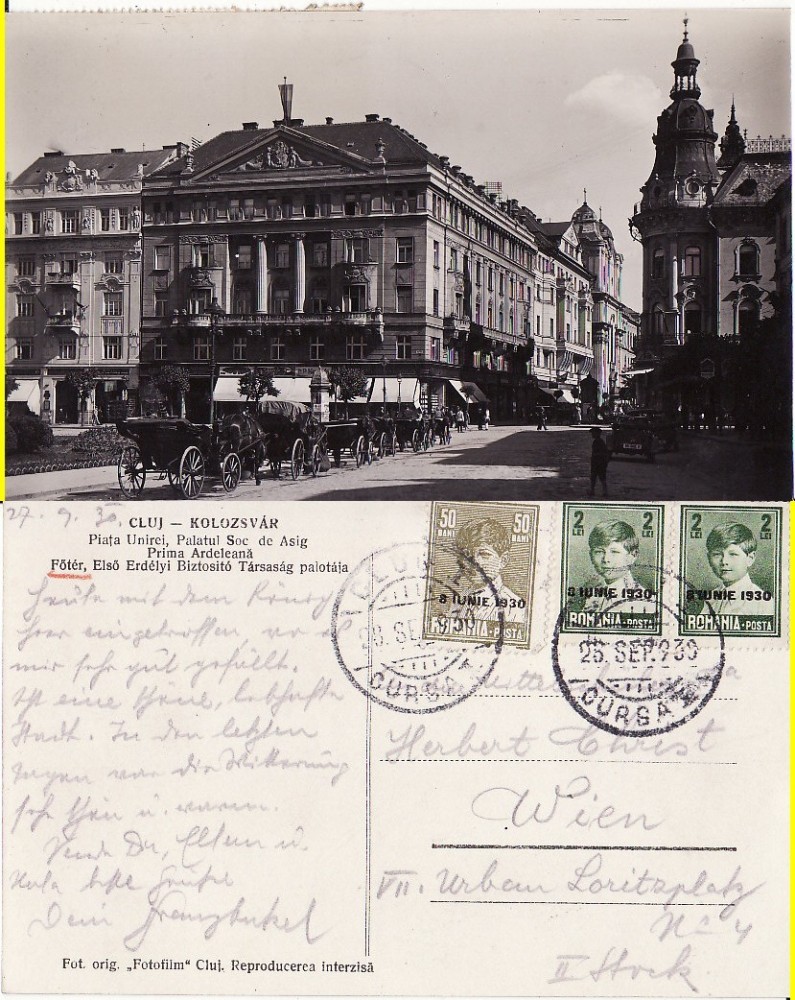 27. 9. 30.
CLUJ — KOLOZSVÁR
Piața Unirei, Palatul Soc de Asig
Prima Ardeleană
Főtér, Első Erdélyi Biztositó Társaság palotája
50 BANI 50 BANI
8 IUNIE 1930
ROMÂNIA-POSTA
2 LEI 2 LEI
8 IUNIE 1930
ROMÂNIA-POSTA
2 LEI 2 LEI
8 IUNIE 1930
ROMÂNIA-POSTA
CLUJ
SEP. 930
CURSA
26 SEP. 930
CURSA
Heute mit dem
hier eingetroffen, wo es
mir sehr gut gefällt.
Ist eine schöne, lebhafte
Stadt. In den letzten
Tagen war die Witterung
sehr schön u. warm.
Sende Dir, Eltern u.
beste Grüße
Dein
Herbert Christ
Wien
VII. Urban Loritzplatz
No 4
II Stock
Fot. orig. „Fotofilm“ Cluj. Reproducerea interzisă